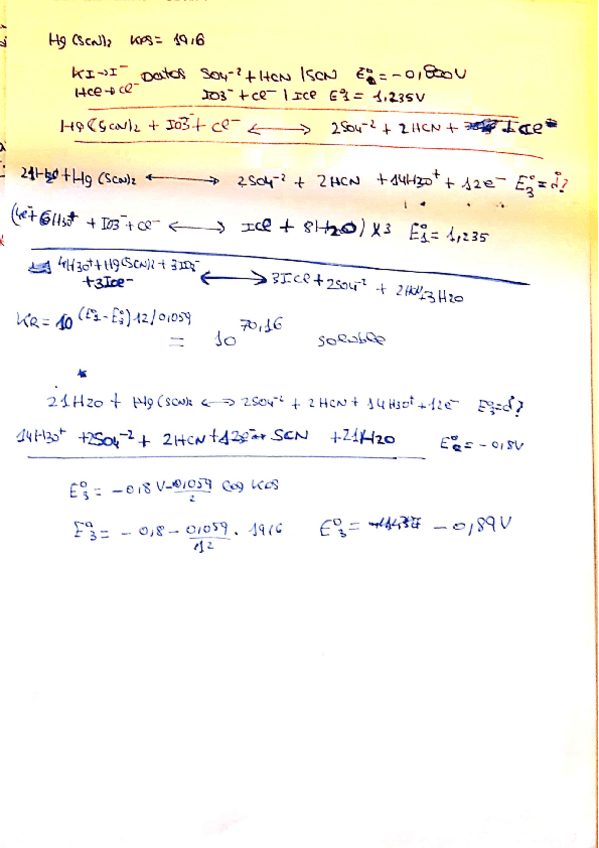 Hg(SCN)2 KPS= 19,6
KI→I⁻ DATOS SO4⁻² + HCN | SCN E°2 = -0,800V
HCl→Cl⁻ IO3⁻ + Cl⁻ | ICl E°1 = 1,235V
Hg(SCN)2 + IO3⁻ + Cl⁻ ⟷ 2SO4⁻² + 2HCN + ICl
21H2O + Hg(SCN)2 ⟷ 2SO4⁻² + 2HCN + 14H3O⁺ + 12e⁻ E°3 = ¿?
(4e⁻ + 6H3O⁺ + IO3⁻ + Cl⁻ ⟷ ICl + 8H2O) x3 E°1 = 1,235
4H3O⁺ + Hg(SCN)2 + 3IO3⁻
+ 3Ice⁻ ⟷ 3ICl + 2SO4⁻² + 2HCN + 3H2O
KR = 10^(E°1 - E°3) 12/0,059
= 10^70,16 soluble
21H2O + Hg(SCN)2 ⟷ 2SO4⁻² + 2HCN + 14H3O⁺ + 12e⁻ E°3 = ¿?
14H3O⁺ + 2SO4⁻² + 2HCN + 12e⁻ ↔ SCN + 21H2O E°2 = -0,8V
E°3 = -0,8V - 0,059/2 log KPS
E°3 = -0,8 - 0,059/12 · 19,6 E°3 = -0,89V